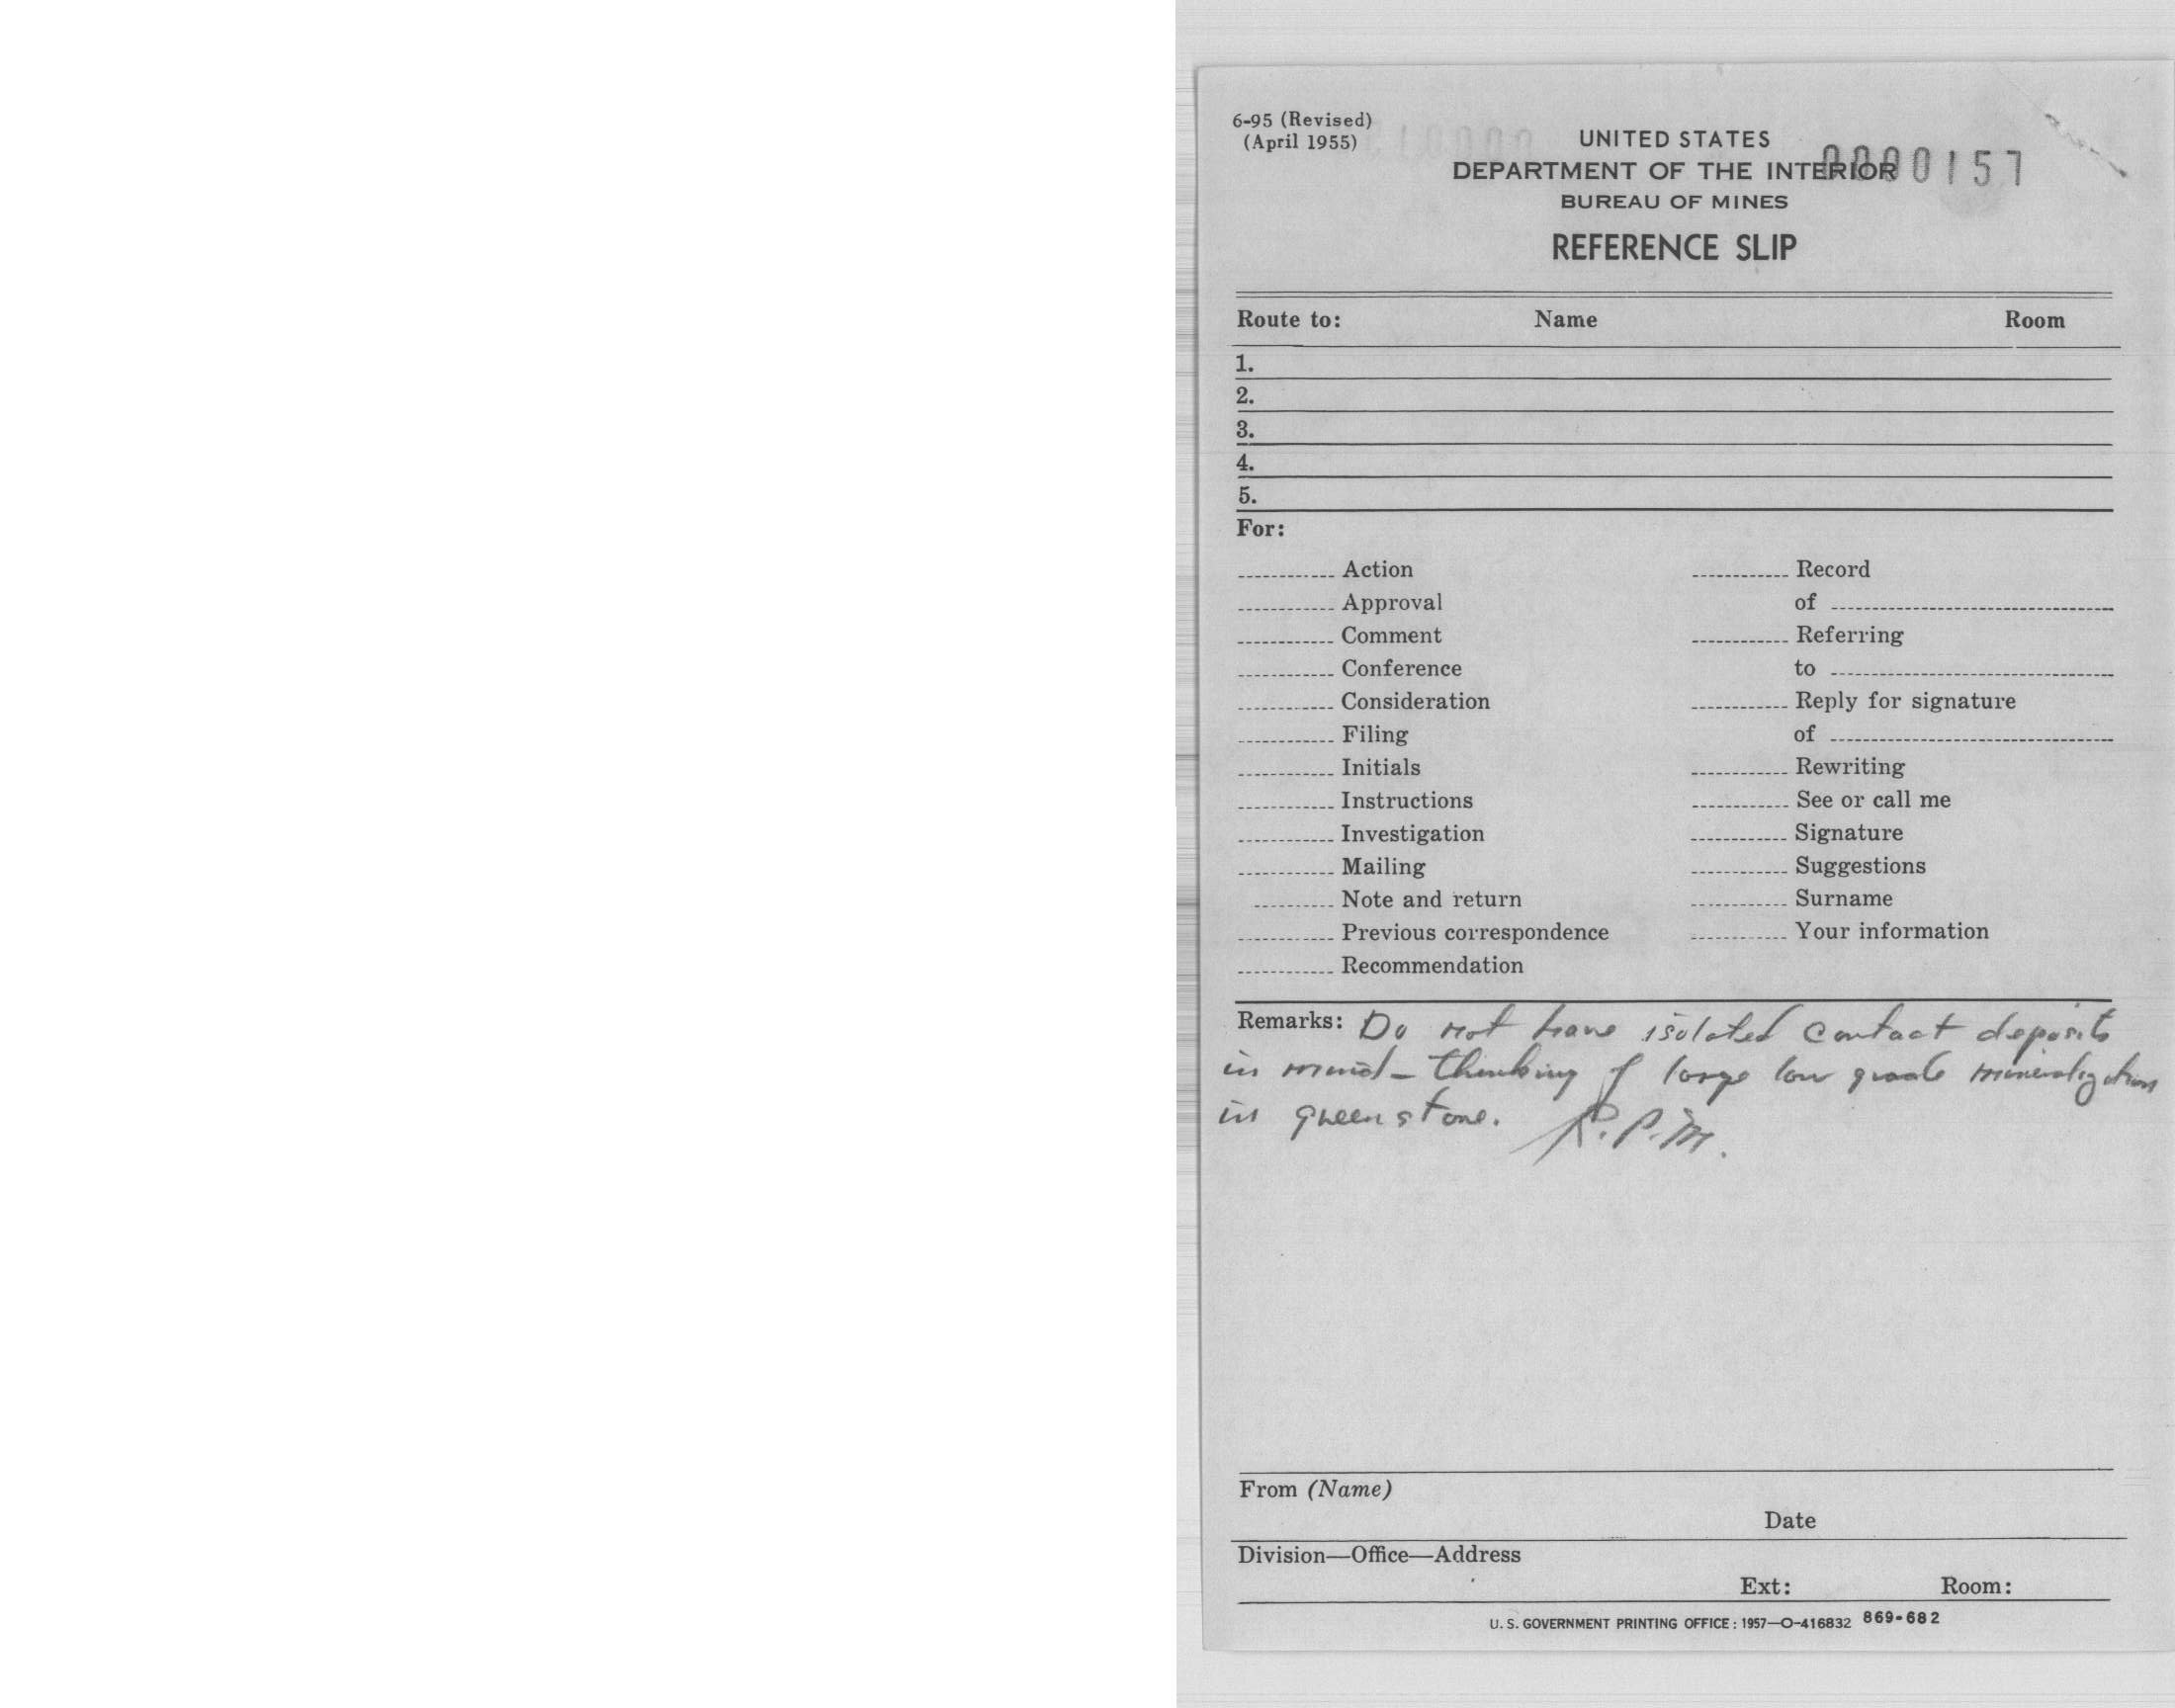 6-95 (Revised)
(April 1955)
UNITED STATES
DEPARTMENT OF THE INTERIOR
0000157
BUREAU OF MINES
REFERENCE SLIP
Route to: Name Room
1.
2.
3.
4.
5.
For:
Action Record
Approval of
Comment Referring
Conference to
Consideration Reply for signature
Filing of
Initials Rewriting
Instructions See or call me
Investigation Signature
Mailing Suggestions
Note and return Surname
Previous correspondence Your information
Recommendation
Remarks: Do not have isolated contact deposits
in mind - thinking of large low grade mineralization
in greenstone. R.P.M.
From (Name)
Date
Division—Office—Address
Ext: Room:
U. S. GOVERNMENT PRINTING OFFICE : 1957—O-416832 869-682